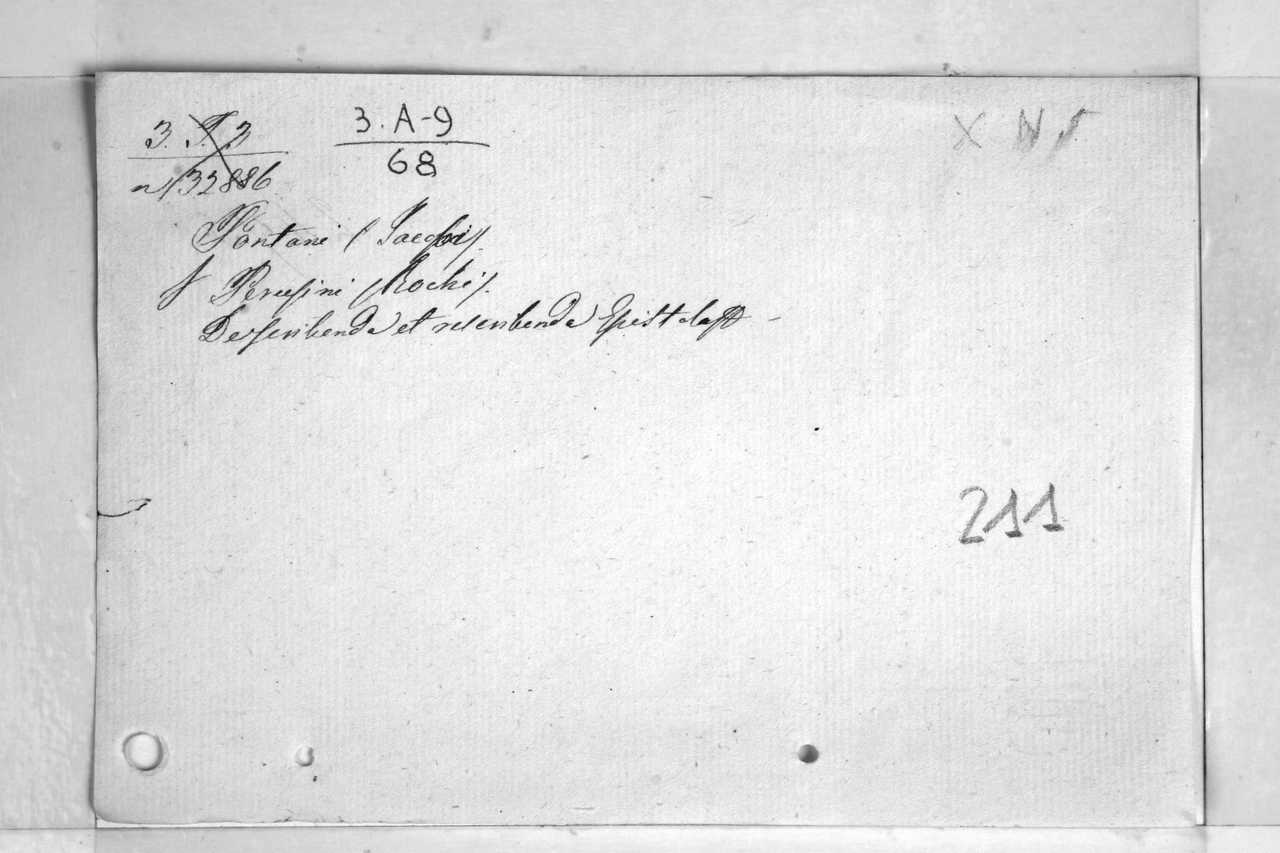 3. J. 3
n/ 32886
3. A-9
68
X N
Fontani (Jacobi/
f Perusini (Rochi/.
Describenda et rescribenda Epist
211